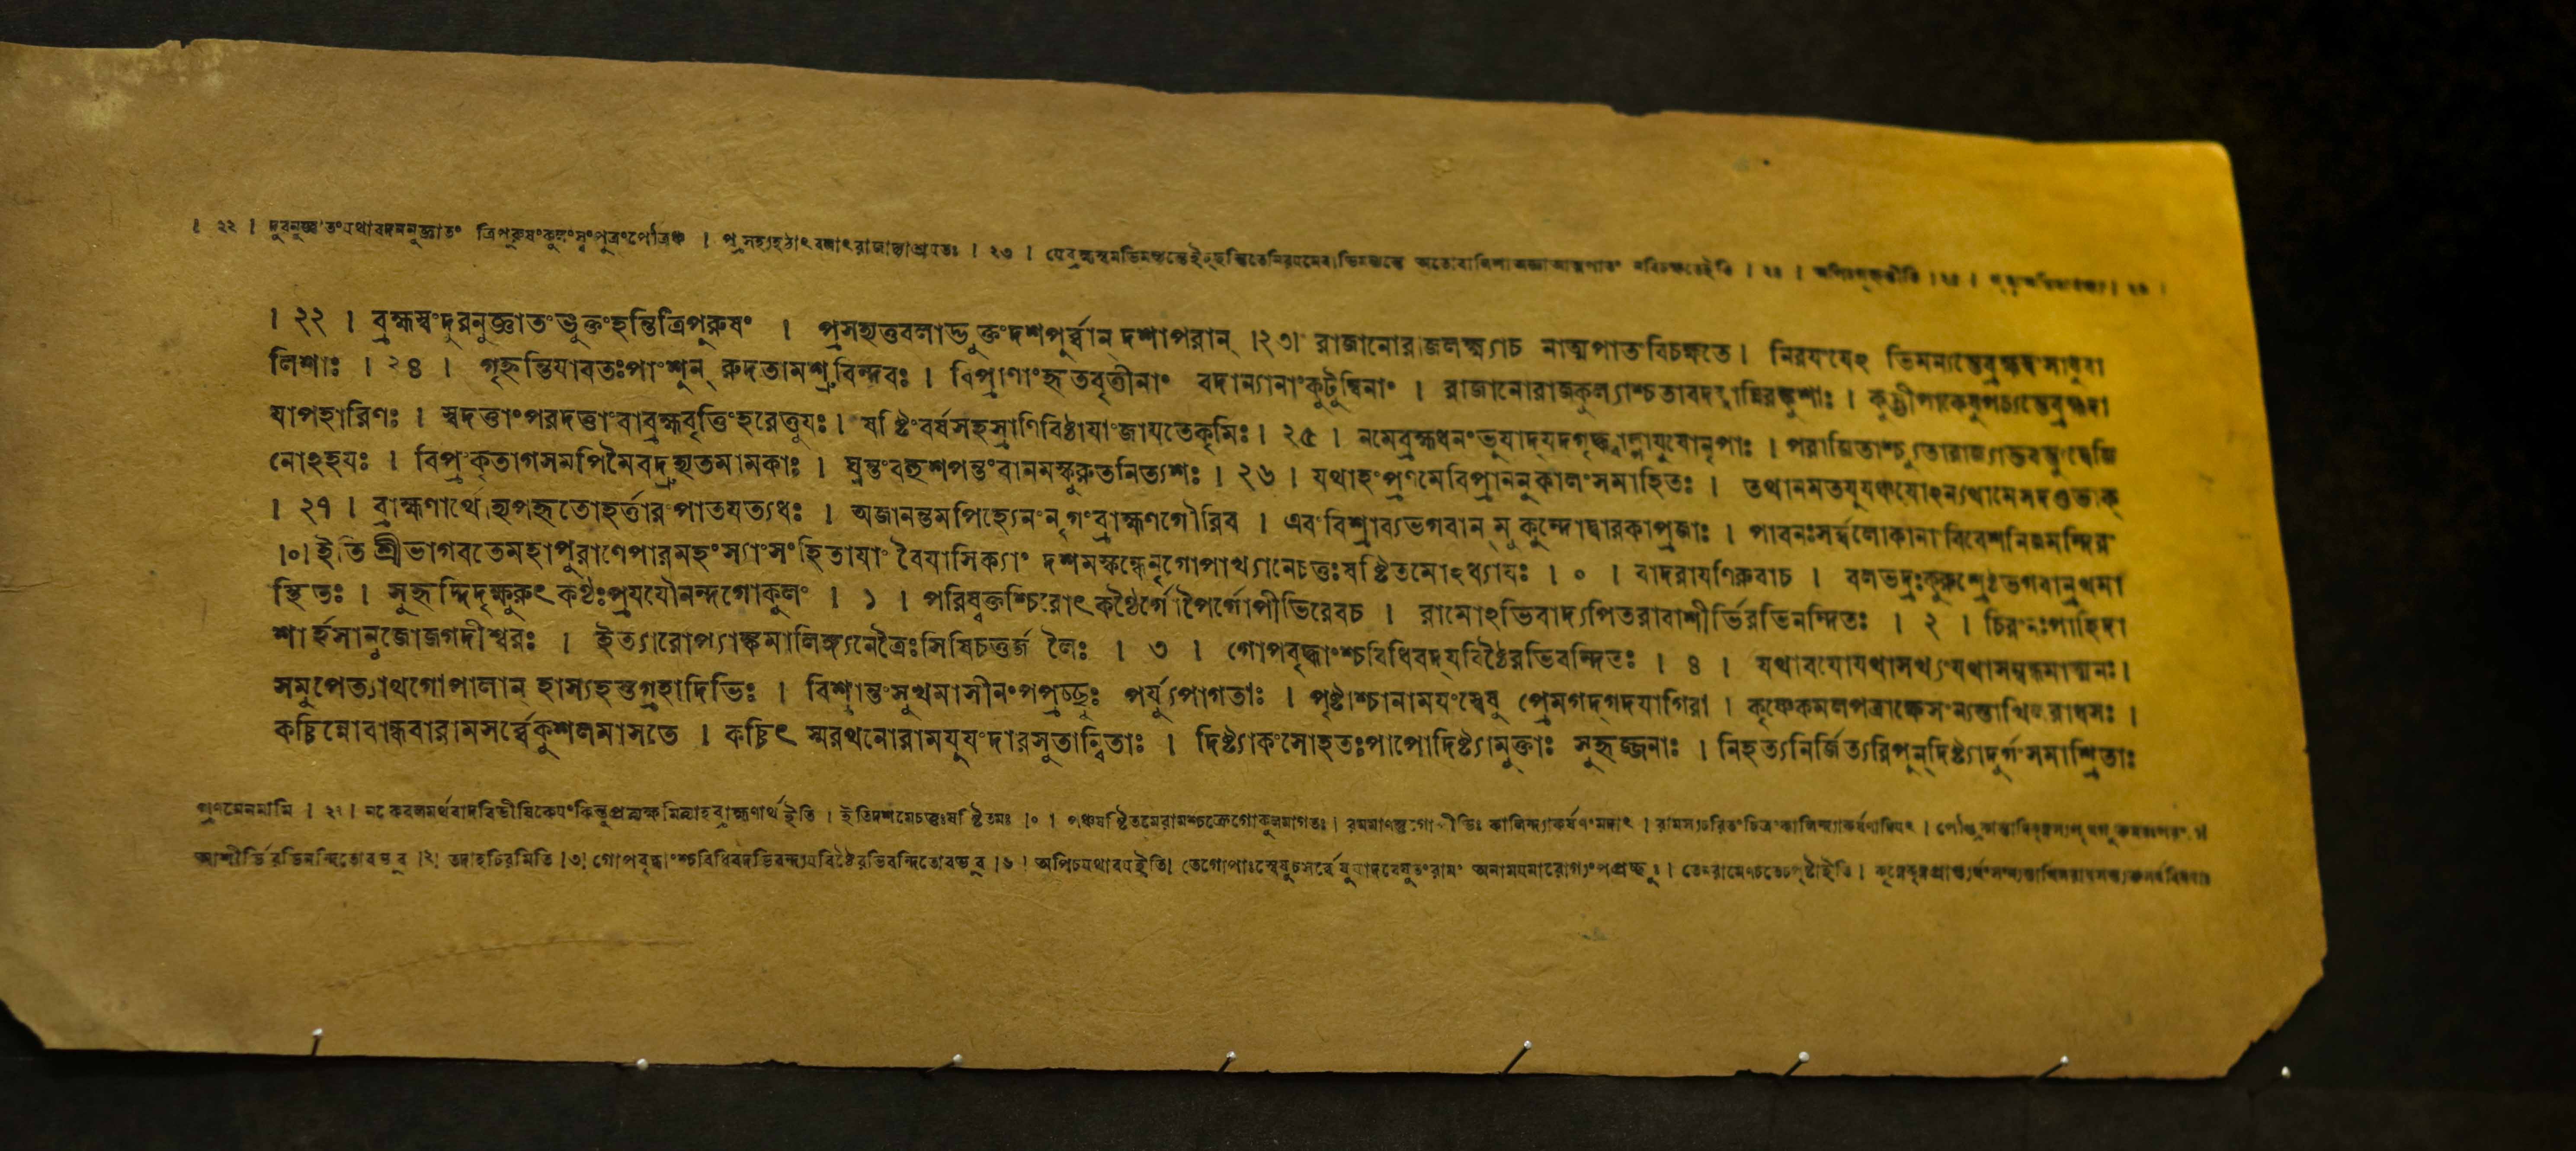 । ২২ । দুরনুজ্ঞাতংযথাবদননুজ্ঞাতং ত্রিপুরুষংকুলংস্বংপুত্রংপৌত্রঞ্চ । প্রসহ্যহঠাৎ বলাৎরাজাদ্যাশ্রয়তঃ । ২৩ ।
। ২২ । ব্রহ্মস্বংদুরনুজ্ঞাতংভুক্তংহন্তিত্রিপুরুষং । প্রসহ্যতুবলাদ্ভুক্তংদশপূর্ব্বান্ দশাপরান্ ।২৩। রাজানোরাজলক্ষ্ম্যাচ নাত্মপাতংবিচক্ষতে । নিরয়ংযেঽ ভিমন্যন্তেব্রহ্মস্বংসাধুবা
লিশাঃ । ২৪ । গৃহ্নন্তিযাবতঃপাংশূন্ রুদতামশ্রুবিন্দবঃ । বিপ্রাণাংহৃতবৃত্তীনাং বদান্যানাংকুটুম্বিনাং । রাজানোরাজকুল্যাশ্চতাবদব্দান্নিরঙ্কুশাঃ । কুম্ভীপাকেষুপচ্যন্তেব্রহ্মদা
যাপহারিণঃ । স্বদত্তাংপরদত্তাংবাব্রহ্মবৃত্তিংহরেত্তুযঃ । ষষ্টিংবর্ষসহস্রাণিবিষ্ঠাযাংজাযতেকৃমিঃ । ২৫ । নমেব্রহ্মধনংভূযাদ্যদগৃদ্ধ্বাল্পাযুষোনৃপাঃ । পরাজিতাশ্চ্যুতারাজ্যাদ্ভবন্ত্যুদ্বেজি
নোঽহযঃ । বিপ্রংকৃতাগসমপিমৈবদ্রুহ্যতমামকাঃ । ঘ্নন্তংবহুশপন্তংবানমস্কুরুতনিত্যশঃ । ২৬ । যথাহংপ্রণমেবিপ্রাননুকালংসমাহিতঃ । তথানমতযূযঞ্চযোঽন্যথামেসদণ্ডভাক্
। ২৭ । ব্রাহ্মণার্থোহ্যপহৃতোহর্ত্তারংপাতযত্যধঃ । অজানন্তমপিহ্যেনংনৃগংব্রাহ্মণগৌরিব । এবংবিশ্রাব্যভগবান্ মুকুন্দোদ্বারকাপ্রজাঃ । পাবনঃসর্ব্বলোকানাংবিবেশনিজমন্দিরং
।০।ইতি শ্রীভাগবতেমহাপুরাণেপারমহংস্যাংসংহিতাযাং বৈযাসিক্যাং দশমস্কন্ধেনৃগোপাখ্যানেচতুঃষষ্টিতমোঽধ্যাযঃ । ০ । বাদরাযণিরুবাচ । বলভদ্রঃকুরুশ্রেষ্ঠভগবান্রথমা
স্থিতঃ । সুহৃদ্দিদৃক্ষুরুৎকণ্ঠঃপ্রযযৌনন্দগোকুলং । ১ । পরিষ্বক্তশ্চিরোৎকণ্ঠৈর্গোপৈর্গোপীভিরেবচ । রামোঽভিবাদ্যপিতরাবাশীর্ভিরভিনন্দিতঃ । ২ । চিরংনঃপাহিদা
শার্হসানুজোজগদীশ্বরঃ । ইত্যারোপ্যাঙ্কমালিঙ্গ্যনেত্রৈঃসিষিচতুর্জ লৈঃ । ৩ । গোপবৃদ্ধাংশ্চবিধিবদ্যবিষ্ঠৈরভিবন্দিতঃ । ৪ । যথাবযোযথাসখ্যংযথাসম্বন্ধমাত্মনঃ ।
সমুপেত্যাথগোপালান্ হাস্যহস্তগ্রহাদিভিঃ । বিশ্রান্তংসুখমাসীনংপপ্রচ্ছুঃ পর্যুপাগতাঃ । পৃষ্টাশ্চানামযংস্বেষু প্রেমগদ্গদযাগিরা । কৃষ্ণেকমলপত্রাক্ষেসংন্যস্তাখিলরাধসঃ ।
কচ্চিন্নোবান্ধবারামসর্ব্বেকুশলমাসতে । কচ্চিৎ স্মরথনোরামযূযংদারসুতান্বিতাঃ । দিষ্ট্যাকংসোহতঃপাপোদিষ্ট্যামুক্তাঃ সুহৃজ্জনাঃ । নিহত্যনির্জিত্যরিপূন্দিষ্ট্যাদুর্গংসমাশ্রিতাঃ
প্রণমেনমামি । ২৭ । নকেবলমর্থবাদবিভীষিকেযংকিন্তুপ্রত্যক্ষমিত্যাহব্রাহ্মণার্থইতি । ইতিদশমেচতুঃষষ্টিতমঃ ।০ । পঞ্চষষ্টিতমেরামশ্চক্রেগোকুলমাগতঃ । রমমাণস্তুগোপীভিঃ কালিন্দ্যাকর্ষণংমদাৎ ।
আশীর্ভিরভিনন্দিতোবভূব ।২। তদাহচিরমিতি ।৩। গোপবৃদ্ধাংশ্চবিধিবদভিবন্দ্যযবিষ্ঠৈরভিবন্দিতোবভূব ।৬ । অপিচযথাবযইতি। তেগোপাঃস্বেষুচসর্বেষু অনামযমারোগ্যংপপ্রচ্ছুঃ ।